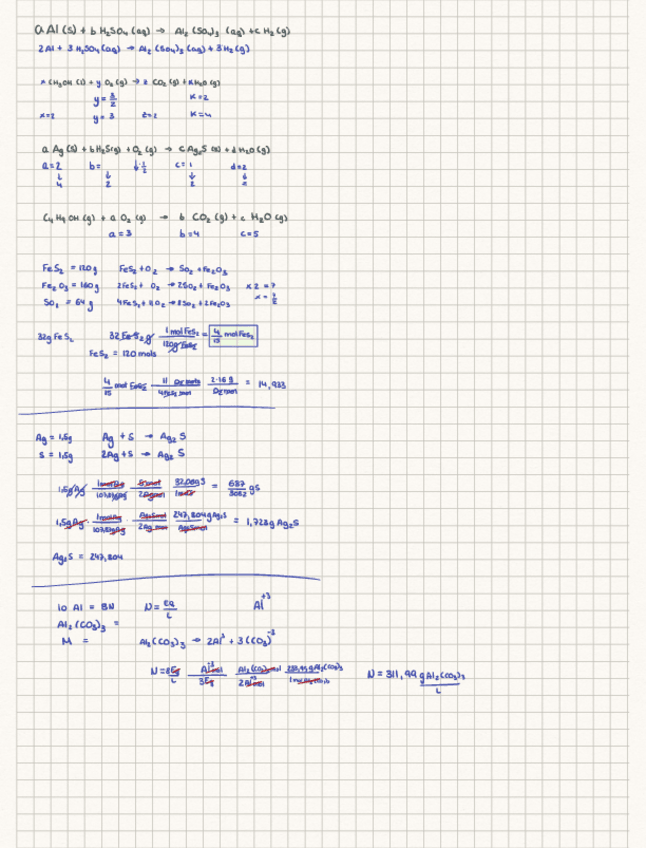 a Al (s) + b H₂SO₄ (aq) → Al₂ (SO₄)₃ (aq) + c H₂ (g)
2Al + 3 H₂SO₄ (aq) → Al₂ (SO₄)₃ (aq) + 3H₂ (g)
x CH₃OH (l) + y O₂ (g) → z CO₂ (g) + K H₂O (g)
y = 3/2 K = 2
x=2 y = 3 z=2 K = 4
a Ag (s) + b H₂S(g) + O₂ (g) → c Ag₂S (s) + d H₂O (g)
a=2 b= ↓ 1/2 c= 1 d=2
↓ ↓ ↓ ↓
4 2 2
C₄ H₉ OH (g) + a O₂ (g) → b CO₂ (g) + c H₂O (g)
a = 3 b=4 c=5
FeS₂ = 120g FeS₂ + O₂ → SO₂ + Fe₂O₃
Fe₂O₃ = 160g 2FeS₂ + O₂ → 2SO₂ + Fe₂O₃ x 2 = 7
SO₂ = 64 g 4FeS₂ + 11O₂ → 8SO₂ + 2Fe₂O₃ x = 7/2
32g FeS₂ 32 FeS₂ g 1 mol FeS₂ / 120g FeS₂ = 4/15 mol FeS₂
FeS₂ = 120 mols
4/15 mol FeS₂ 11 O₂ mols / 4FeS₂ mol 2·16 g / O₂ mol = 14,933
Ag = 1,5g Ag + S → Ag₂ S
S = 1,5g 2Ag + S → Ag₂ S
1,5g Ag 1mol Ag / 107,87g Ag S mol / 2Ag mol 32,06g S / 1mol S = 687/3082 g S
1,5g Ag · 1mol Ag / 107,87g Ag · Ag₂S mol / 2Ag mol 247,804g Ag₂S / Ag₂S mol = 1,723g Ag₂S
Ag₂S = 247,804
10 Al = 8N N = EQ/L Al⁺³
Al₂(CO₃)₃ =
M = Al₂(CO₃)₃ → 2Al³ + 3(CO₃)⁻²
N = 8Eq/L Al⁺³ mol / 3Eq Al₂(CO₃)₃ mol / 2Al⁺³ mol N = 311,99 g Al₂(CO₃)₃ / L